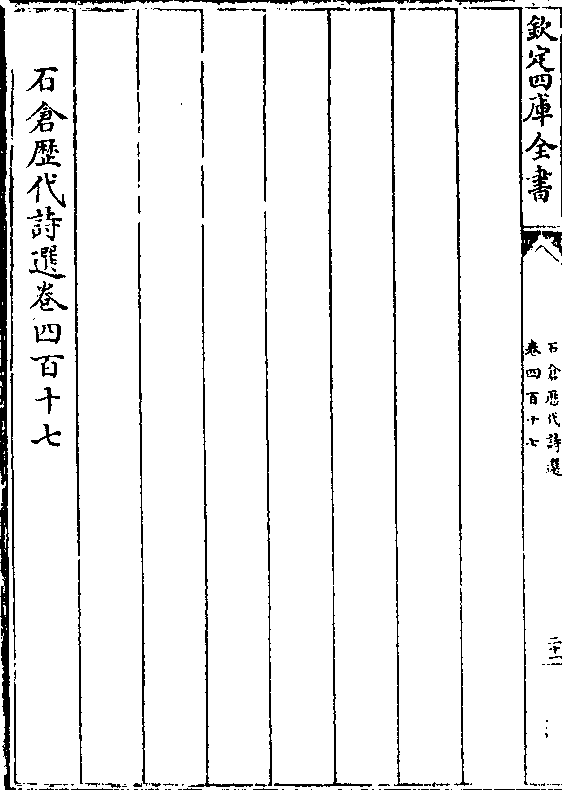 欽定四庫全書
石倉歷代詩選
卷四百十七
二十一
石倉歷代詩選卷四百十七